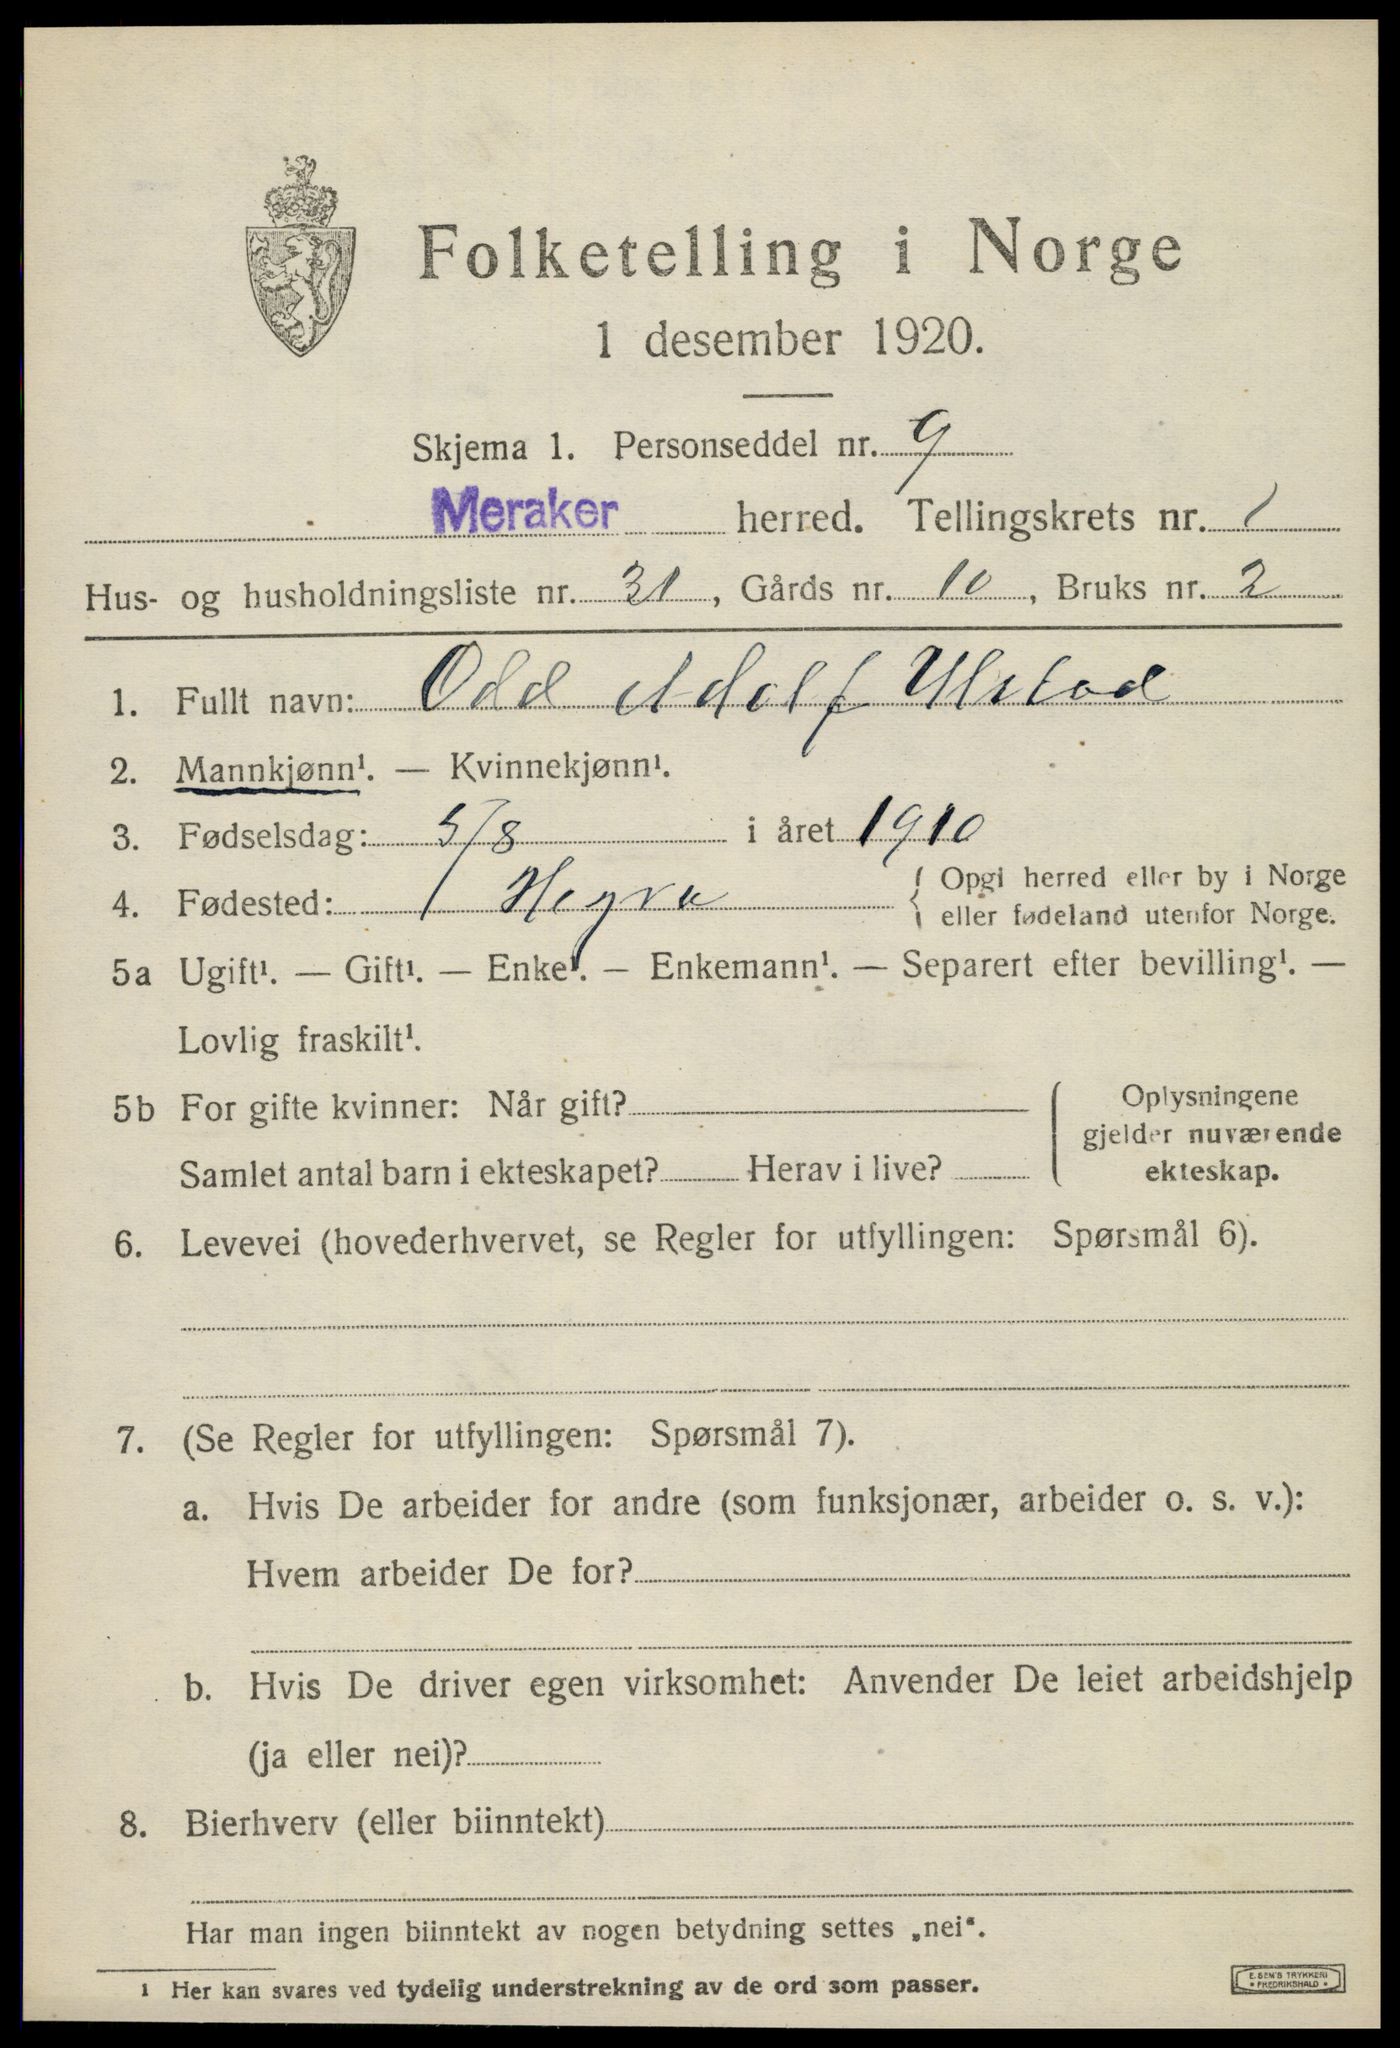 Folketelling i Norge
1 desember 1920.
Skjema 1. Personseddel nr. 9
Meraker herred. Tellingskrets nr. 1
Hus- og husholdningsliste nr. 31, Gårds nr. 10, Bruks nr. 2
1. Fullt navn: Odd Adolf Ulstad
2. Mannkjønn¹. — Kvinnekjønn¹.
3. Fødselsdag: 5/8 i året 1910
4. Fødested: Hegra { Opgi herred eller by i Norge
eller fødeland utenfor Norge.
5a Ugift¹. — Gift¹. — Enke¹. — Enkemann¹. — Separert efter bevilling¹. —
Lovlig fraskilt¹.
5b For gifte kvinner: Når gift?
Samlet antal barn i ekteskapet? Herav i live?
Oplysningene
gjelder nuværende
ekteskap.
6. Levevei (hovederhvervet, se Regler for utfyllingen: Spørsmål 6).
7. (Se Regler for utfyllingen: Spørsmål 7).
a. Hvis De arbeider for andre (som funksjonær, arbeider o. s. v.):
Hvem arbeider De for?
b. Hvis De driver egen virksomhet: Anvender De leiet arbeidshjelp
(ja eller nei)?
8. Bierhverv (eller biinntekt)
Har man ingen biinntekt av nogen betydning settes „nei“.
1 Her kan svares ved tydelig understrekning av de ord som passer.
E. SEM'S TRYKKERI
* FREDRIKSHALD *